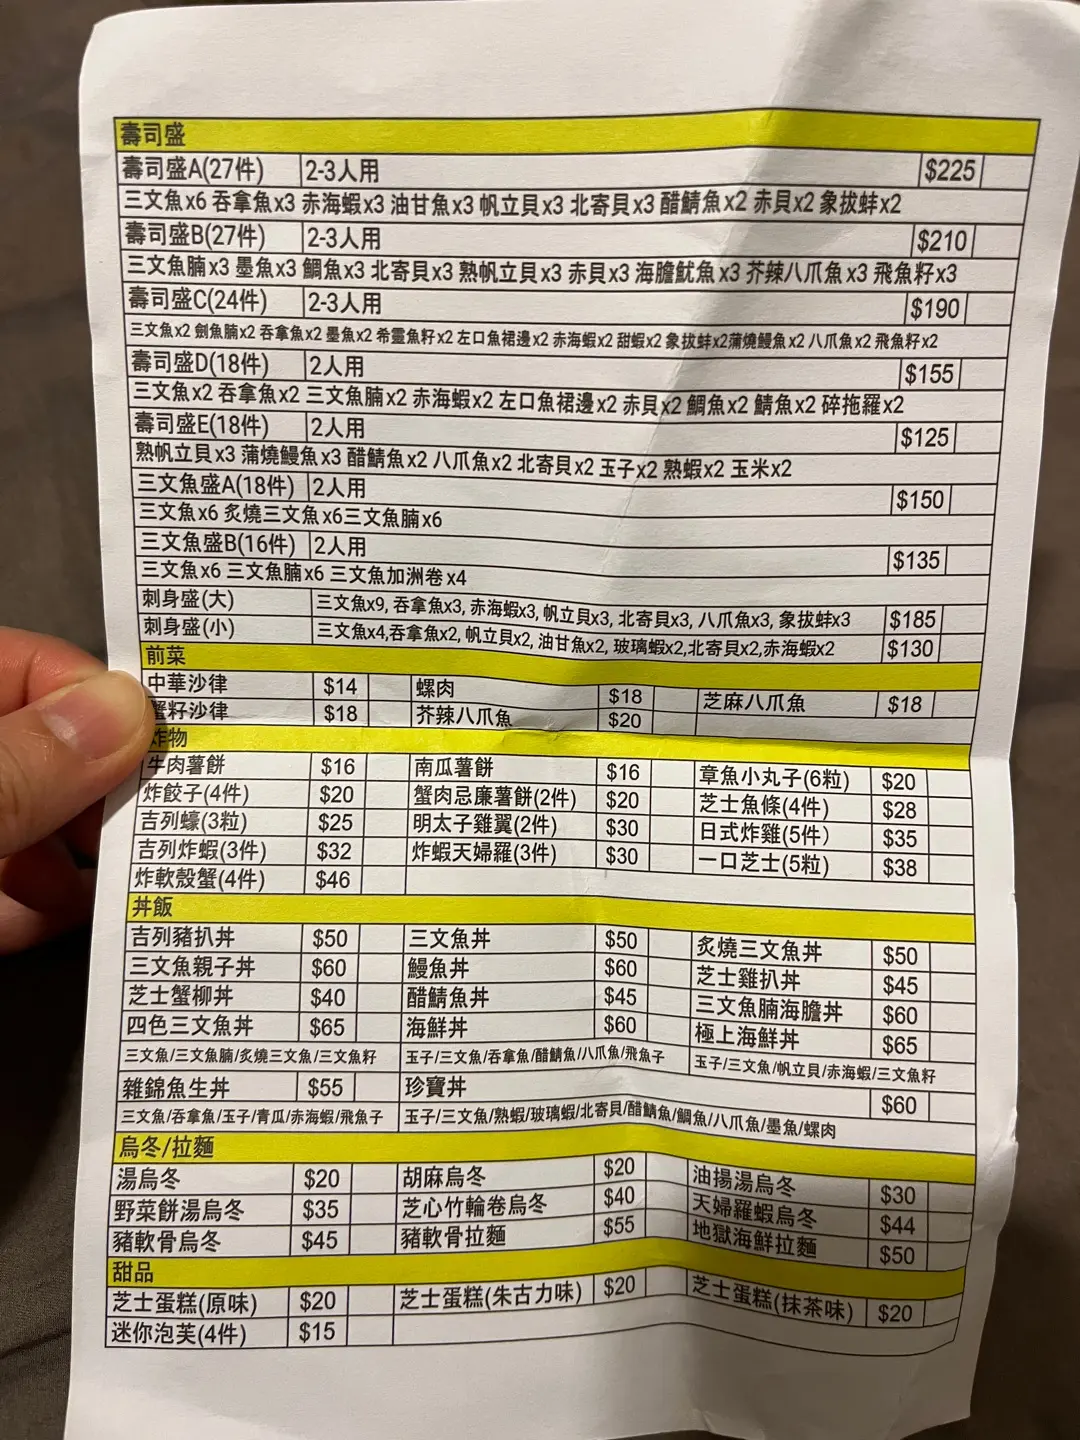 壽司盛
壽司盛A(27件) 2-3人用 $225
三文魚x6 吞拿魚x3 赤海蝦x3 油甘魚x3 帆立貝x3 北寄貝x3 醋鯖魚x2 赤貝x2 象拔蚌x2
壽司盛B(27件) 2-3人用 $210
三文魚腩x3 墨魚x3 鯛魚x3 北寄貝x3 熟帆立貝x3 赤貝x3 海膽魷魚x3 芥辣八爪魚x3 飛魚籽x3
壽司盛C(24件) 2-3人用 $190
三文魚x2 劍魚腩x2 吞拿魚x2 墨魚x2 希靈魚籽x2 左口魚裙邊x2 赤海蝦x2 甜蝦x2 象拔蚌x2蒲燒鰻魚x2 八爪魚x2 飛魚籽x2
壽司盛D(18件) 2人用 $155
三文魚x2 吞拿魚x2 三文魚腩x2 赤海蝦x2 左口魚裙邊x2 赤貝x2 鯛魚x2 鯖魚x2 碎拖羅x2
壽司盛E(18件) 2人用 $125
熟帆立貝x3 蒲燒鰻魚x3 醋鯖魚x2 八爪魚x2 北寄貝x2 玉子x2 熟蝦x2 玉米x2
三文魚盛A(18件) 2人用 $150
三文魚x6 炙燒三文魚x6三文魚腩x6
三文魚盛B(16件) 2人用 $135
三文魚x6 三文魚腩x6 三文魚加洲卷x4
刺身盛(大) 三文魚x9, 吞拿魚x3, 赤海蝦x3, 帆立貝x3, 北寄貝x3, 八爪魚x3, 象拔蚌x3 $185
刺身盛(小) 三文魚x4,吞拿魚x2, 帆立貝x2, 油甘魚x2, 玻璃蝦x2,北寄貝x2,赤海蝦x2 $130
前菜
中華沙律 $14 螺肉 $18 芝麻八爪魚 $18
蟹籽沙律 $18 芥辣八爪魚 $20
炸物
牛肉薯餅 $16 南瓜薯餅 $16 章魚小丸子(6粒) $20
炸餃子(4件) $20 蟹肉忌廉薯餅(2件) $20 芝士魚條(4件) $28
吉列蠔(3粒) $25 明太子雞翼(2件) $30 日式炸雞(5件) $35
吉列炸蝦(3件) $32 炸蝦天婦羅(3件) $30 一口芝士(5粒) $38
炸軟殼蟹(4件) $46
丼飯
吉列豬扒丼 $50 三文魚丼 $50 炙燒三文魚丼 $50
三文魚親子丼 $60 鰻魚丼 $60 芝士雞扒丼 $45
芝士蟹柳丼 $40 醋鯖魚丼 $45 三文魚腩海膽丼 $60
四色三文魚丼 $65 海鮮丼 $60 極上海鮮丼 $65
三文魚/三文魚腩/炙燒三文魚/三文魚籽 玉子/三文魚/吞拿魚/醋鯖魚/八爪魚/飛魚子 玉子/三文魚/帆立貝/赤海蝦/三文魚籽
雜錦魚生丼 $55 珍寶丼 $60
三文魚/吞拿魚/玉子/青瓜/赤海蝦/飛魚子 玉子/三文魚/熟蝦/玻璃蝦/北寄貝/醋鯖魚/鯛魚/八爪魚/墨魚/螺肉
烏冬/拉麵
湯烏冬 $20 胡麻烏冬 $20 油揚湯烏冬 $30
野菜餅湯烏冬 $35 芝心竹輪卷烏冬 $40 天婦羅蝦烏冬 $44
豬軟骨烏冬 $45 豬軟骨拉麵 $55 地獄海鮮拉麵 $50
甜品
芝士蛋糕(原味) $20 芝士蛋糕(朱古力味) $20 芝士蛋糕(抹茶味) $20
迷你泡芙(4件) $15